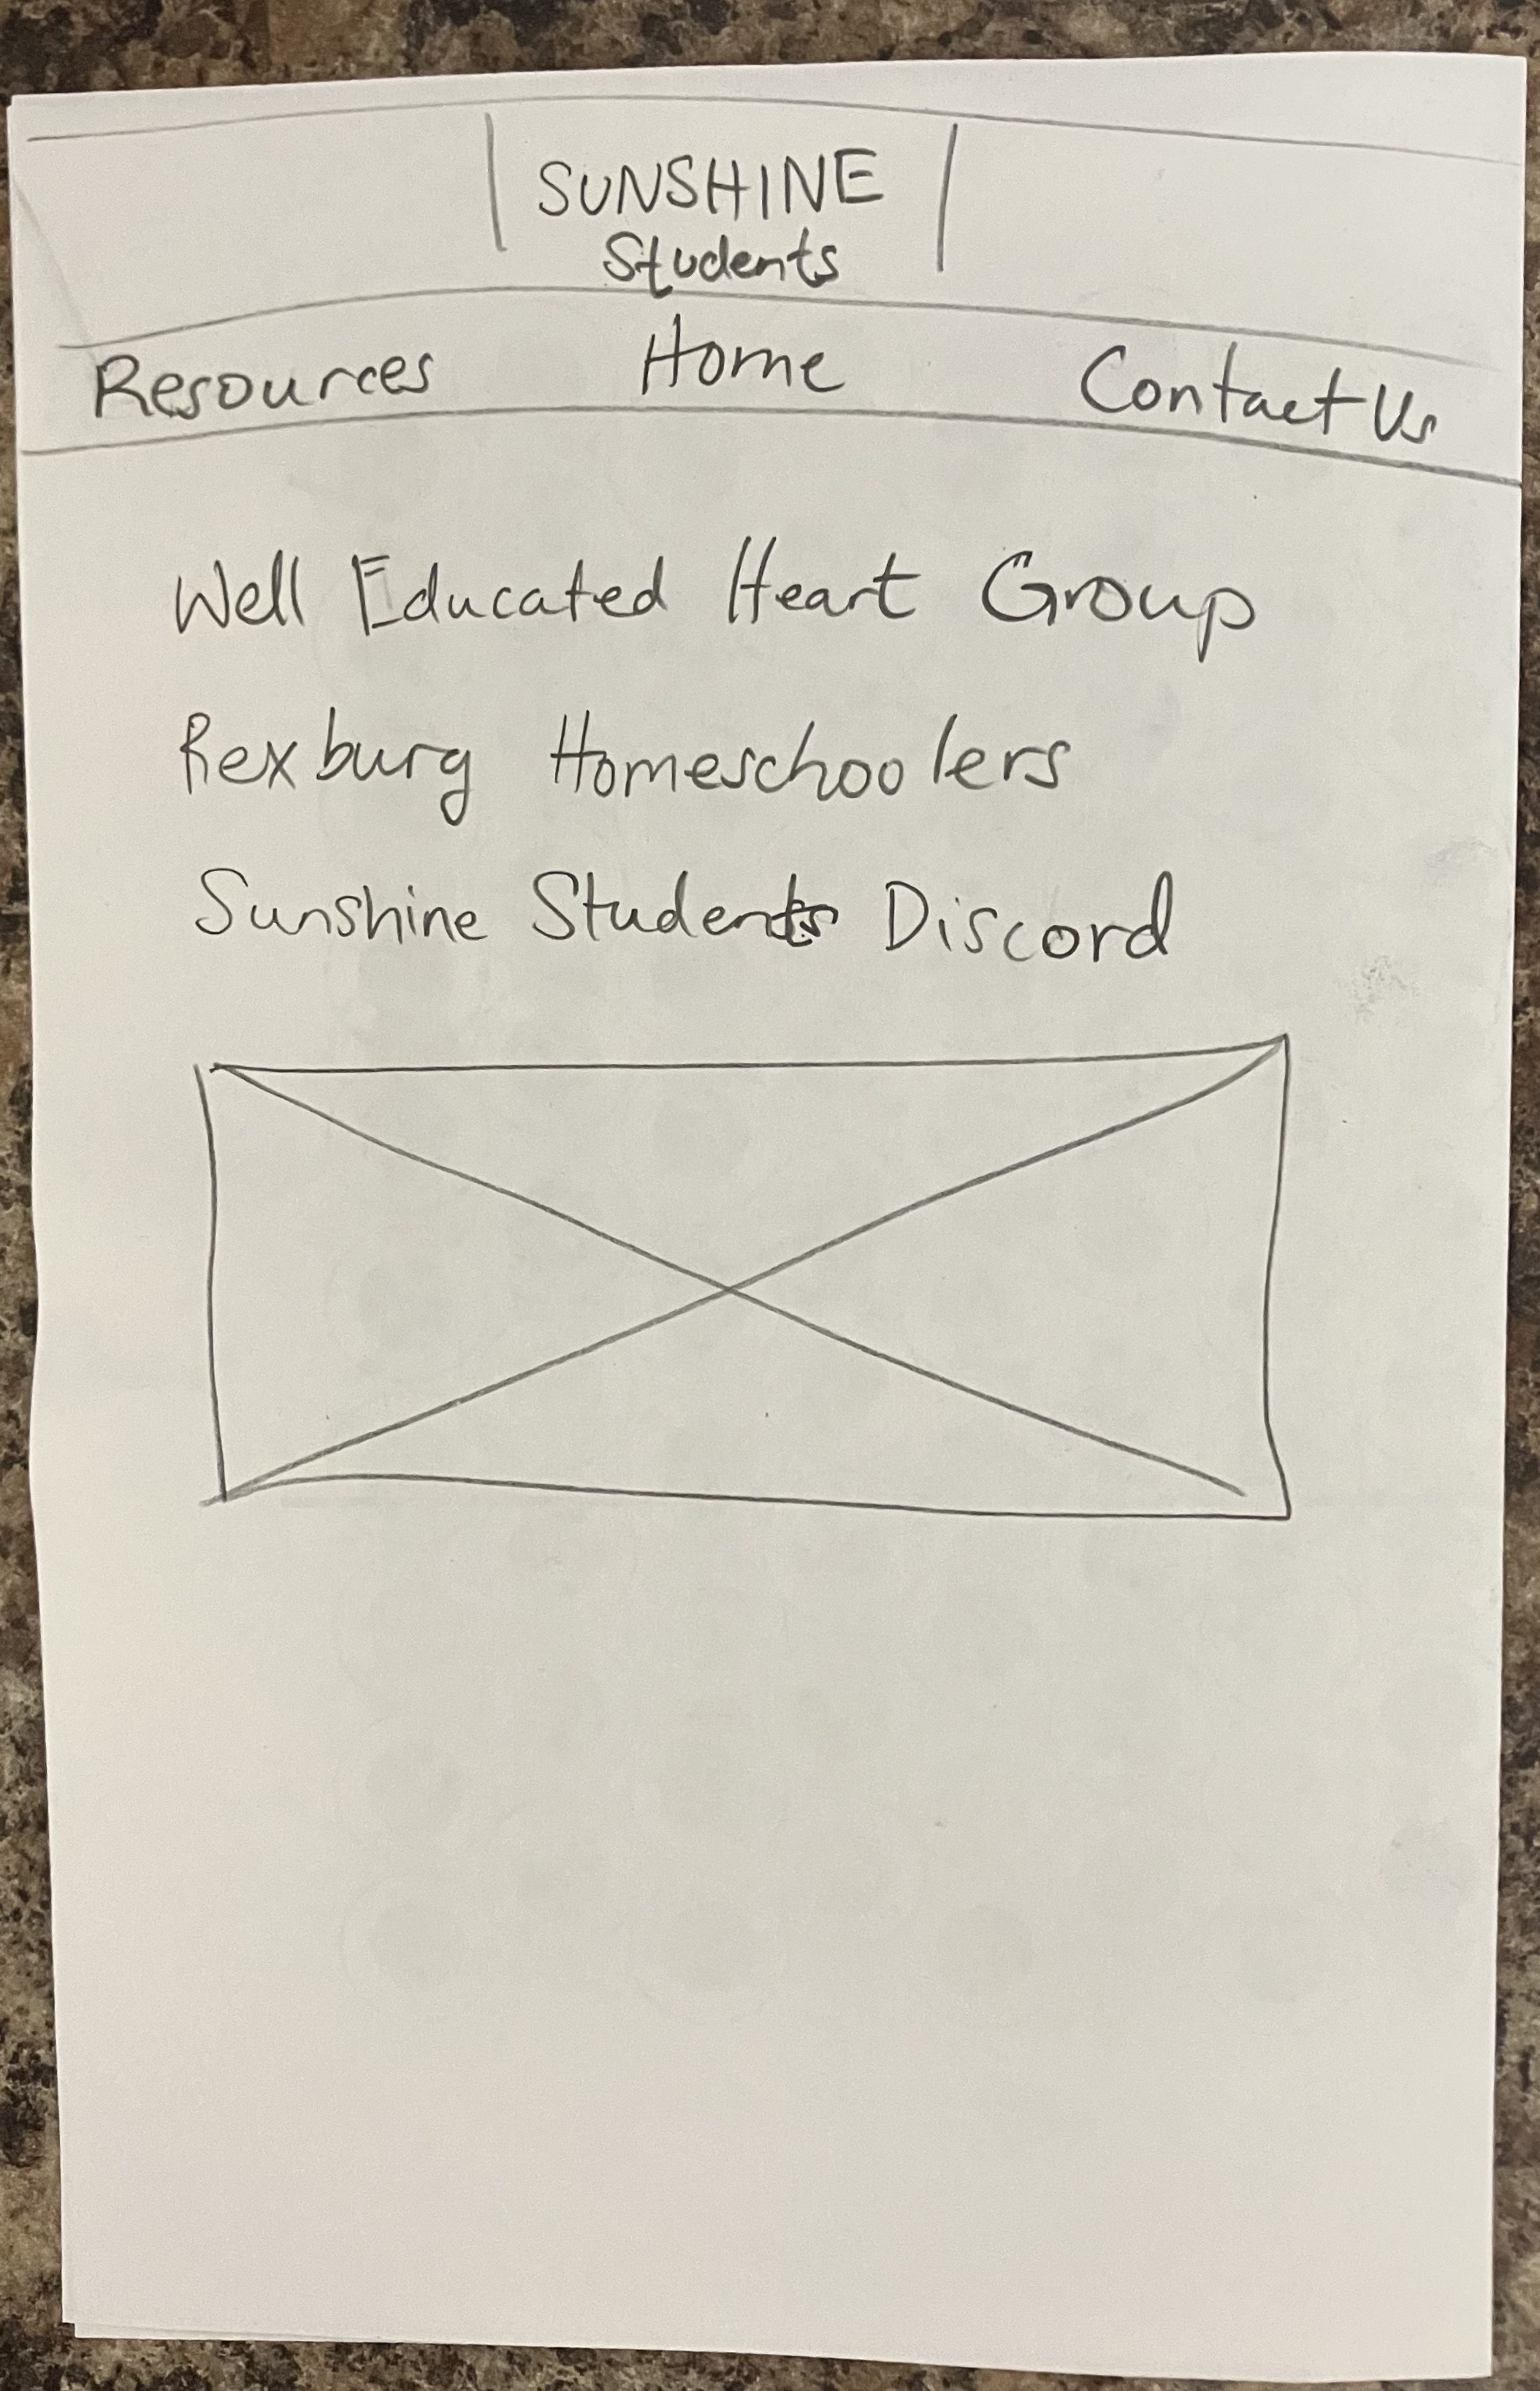 SUNSHINE
Students
Resources Home Contact Us
Well Educated Heart Group
Rexburg Homeschoolers
Sunshine Students Discord